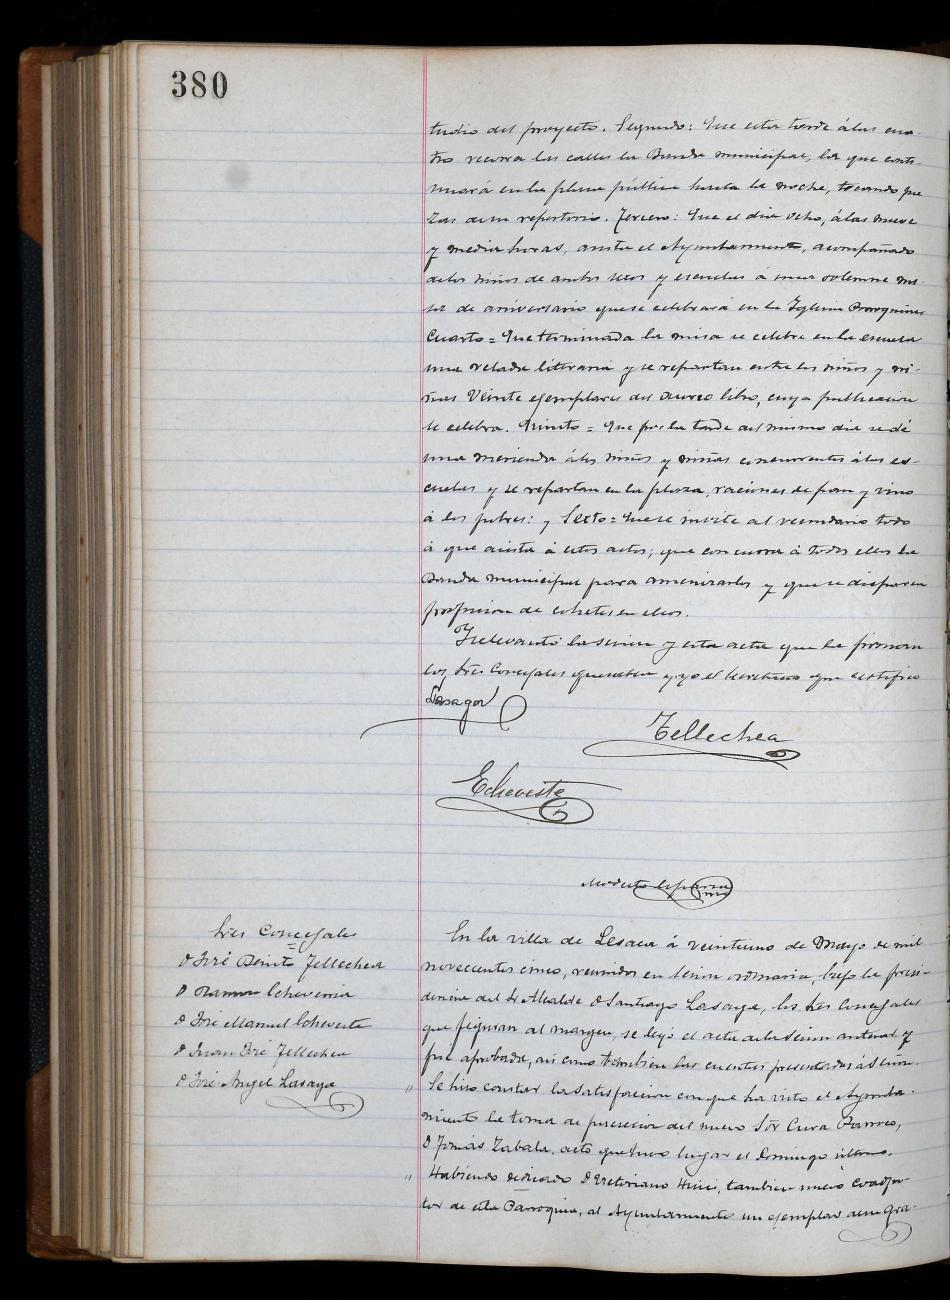 380
tudio del proyecto. Segundo: Que esta tarde á las cua-
tro recorra las calles la Banda municipal, la que conti-
nuará en la plaza pública hasta la noche, tocando pie-
zas de su repertorio. Tercero: Que el dia ocho, á las nueve
y media horas, asista el Ayuntamiento, acompañado
de los niños de ambos sexos y escuelas á una solemne mi-
sa de aniversario que se celebrará en la Iglesia Parroquial
Cuarto = Que terminada la misa se celebre en la escuela
una velada literaria y se repartan entre los niños y ni-
ñas Veinte ejemplares del áureo libro, cuya publicacion
se celebra. Quinto = Que por la tarde del mismo dia se dé
una merienda á los niños y niñas concurrentes á las es-
cuelas y se repartan en la plaza, raciones de pan y vino
á los pobres: y Sexto = Que se invite al vecindario todo
á que asista á estos actos; que concurra á todos ellos la
Banda municipal para amenizarlos y que se disparen
profusion de cohetes en ellos.
Y se levantó la sesion y esta acta que la firman
los Sres Concejales que saben y yo el Secretario que certifico
Lasaga
Tellechea
Echeveste
Modesto
Sres Concejales
D José Benito Tellechea
D Ramon Echeverria
D José Manuel Echeveste
D Juan José Tellechea
D José Angel Lasaga
En la villa de Lesaca á veintiuno de Mayo de mil
novecientos cinco, reunidos en sesion ordinaria, bajo la presi-
dencia del Sr Alcalde D Santiago Lasaga, los Sres Concejales
que figuran al margen, se leyó el acta de la sesion anterior y
fué aprobada, así como tambien las cuentas presentadas á sesion.
" Se hizo constar la satisfaccion con que ha visto el Ayunta-
miento la toma de posesion del nuevo Sor Cura Parroco,
D Tomás Zabala, acto que tuvo lugar el Domingo último.
" Habiendo dedicado D Victoriano, tambien nuevo coadju-
tor de esta Parroquia, al Ayuntamiento un ejemplar de su Gra-